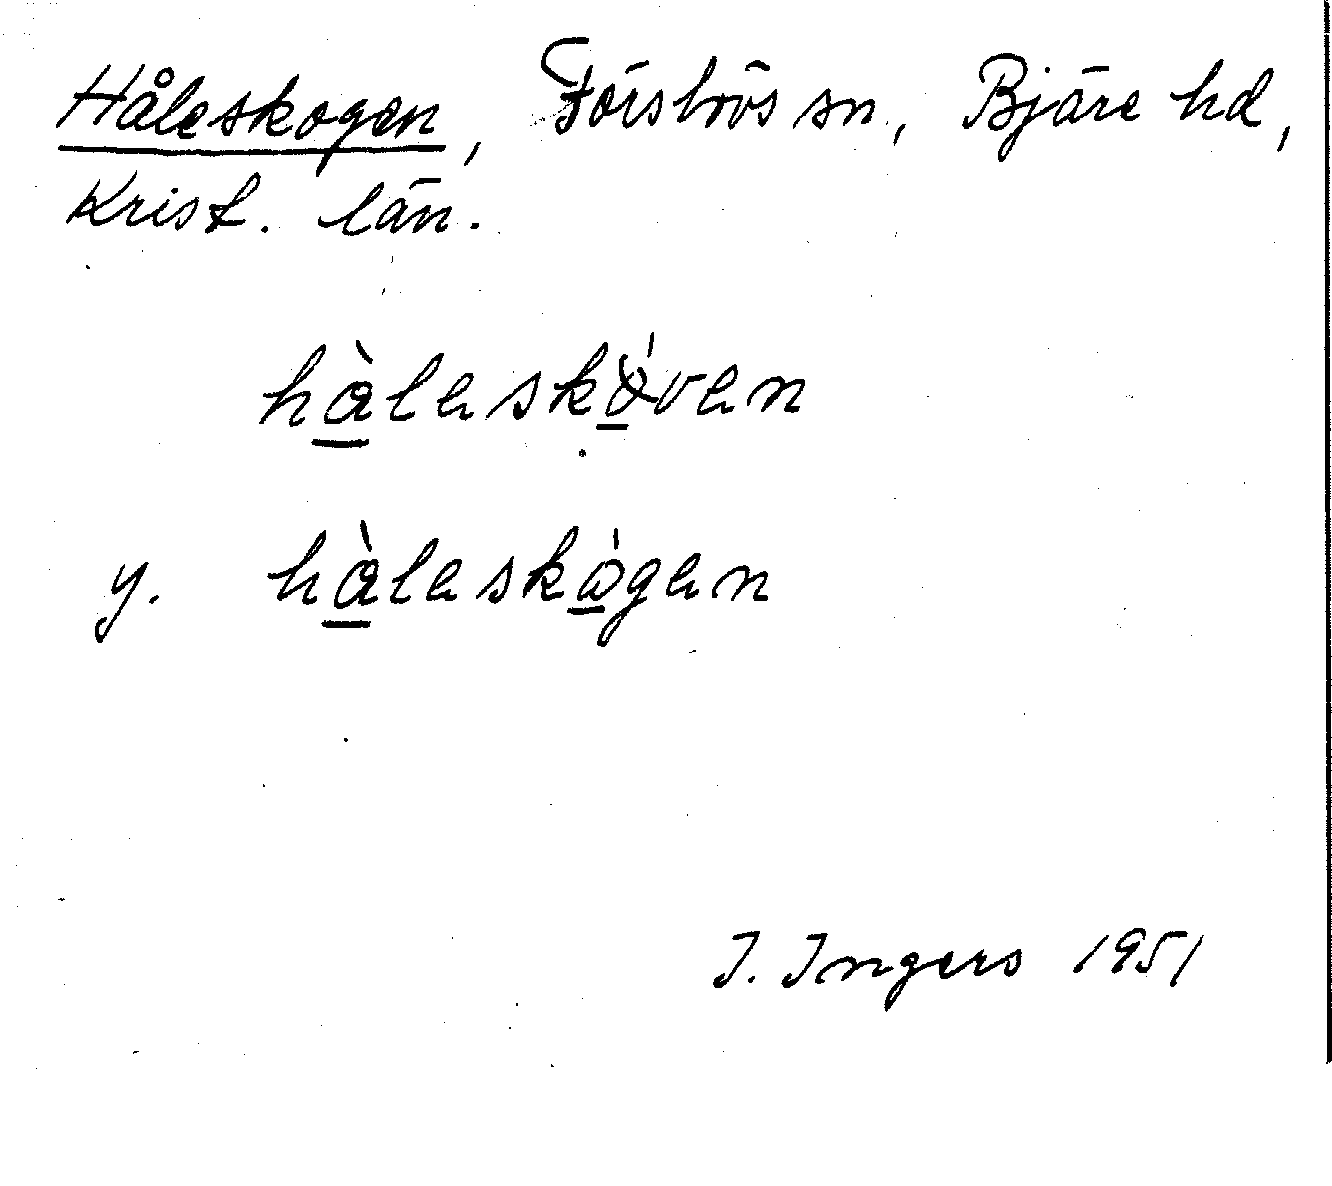 Håleskogen, Förslövs sn, Bjäre hd,
Krist. län.
hàleskóven
y. hàleskógen
I. Ingers 1951